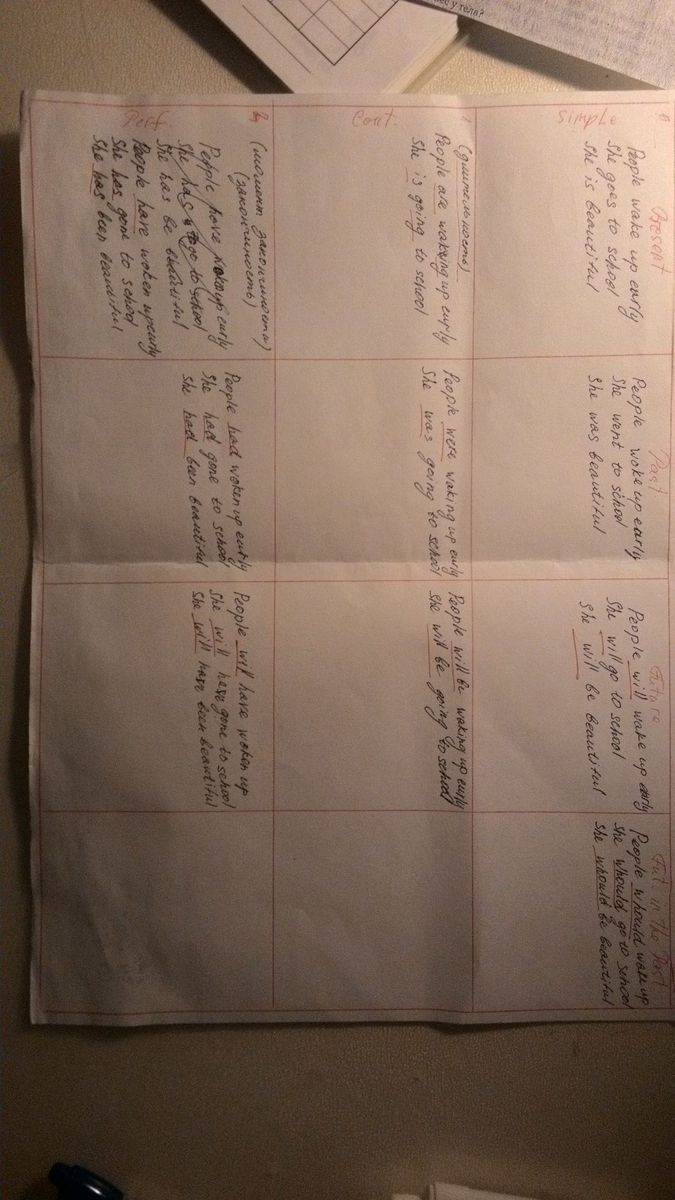 ес у тела?
Present
Past
Future
Fut in the Past
0
Simple
People wake up early
She goes to school
She is beautiful
People woke up early
She went to school
She was beautiful
People will wake up early
She will go to school
She will be beautiful
People whould wake up
She whould go to school
She whould be beautiful
1
Cont.
(длительность)
People are waking up early
She is going to school
People were waking up early
She was going to school
People will be waking up early
She will be going to school
2
Perf.
(момент законченности)
(законченность)
People have woke up early
She has to go to school
She has be beautiful
People have woken up early
She has gone to school
She has been beautiful
People had woken up early
She had gone to school
She had been beautiful
People will have woken up
She will have gone to school
She will have been beautiful